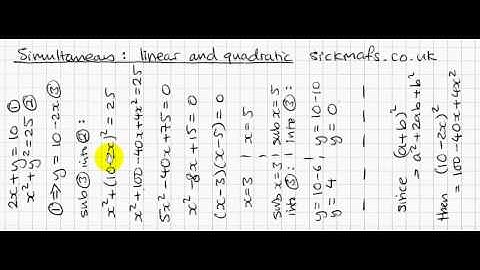 Simultaneous: linear and quadratic sickmafs.co.uk
2x+y=10 ①
x²+y²=25 ②
①⇒y=10-2x ③
sub ③ into ②:
x²+(10-2x)²=25
x²+100-40x+4x²=25
5x²-40x+75=0
x²-8x+15=0
(x-3)(x-5)=0
x=3 | x=5
sub x=3 | sub x=5
into ③: | into ③:
y=10-6 | y=10-10
y=4 | y=0
since (a+b)²
= a²+2ab+b²
then (10-2x)²
= 100-40x+4x²